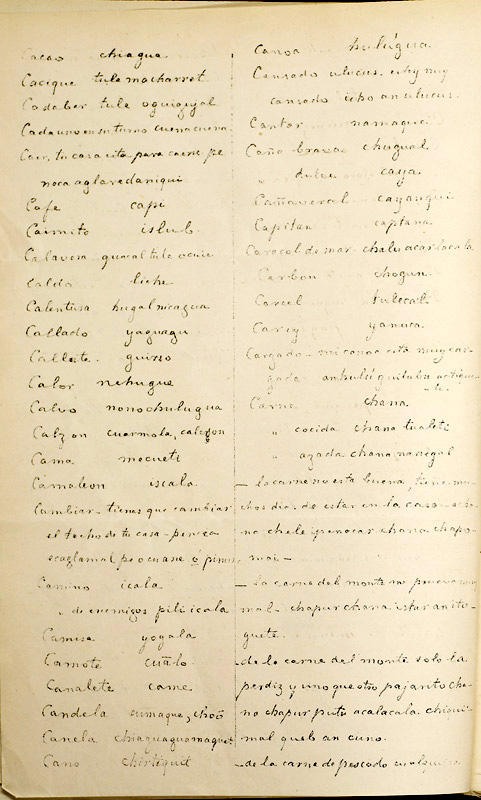 Cacao chiagua
Cacique tule macharret
Cadaber tule oguigyal
Cada uno en su turno cuenacuena
Caer, tu casa cita para caerse pe
noca aglaredaniqui
Cafe capi
Caimito islub
Calavera guacal tule
Caldo liche
Calentura hugalnicagua
Callado yaguagu
Callate guirso
Calor nehugue
Calvo nonochulugua
Calzon cuarmala, calzon
Cama mocueti
Camaleon iscala
Cambiar - tienes que cambiar
el techo de tu casa - peneca
ecaglamal pe ocuane ó pimu
Camino icala
" de enemigos pili icala
Camisa yogala
Camote cualo
Canalete came
Candela sumague, choó
Canela chiaguaguamaguet
Cano chirtiquit
Canoa hulúguia
Cansado ulucus. estoy muy
cansado icho an ulucus.
Cantar namaque
Caña brava chugual
" dulce caya
Cañaveral cayangui
Capitan captana
Caracol de mar chalu acarlacala
Carbon chogun
Carcel tulecali
Carey yauca
Cargado - mi canoa está muy car-
gada
Carne chana
" cocida chana tualeti
" azada chana nacigal
- la carne no esta buena tiene mu-
chos dias de estar en la casa
na chele ipenocar chana chapo
mai -
- la carne del monte no
mal - chapur chana
guete.
- de la carne del monte solo la
perdiz y uno que otro pajarito cha-
na chapur putu acalacala chiqui
mal queb an cuno.
- de la carne de pescado cualquiera